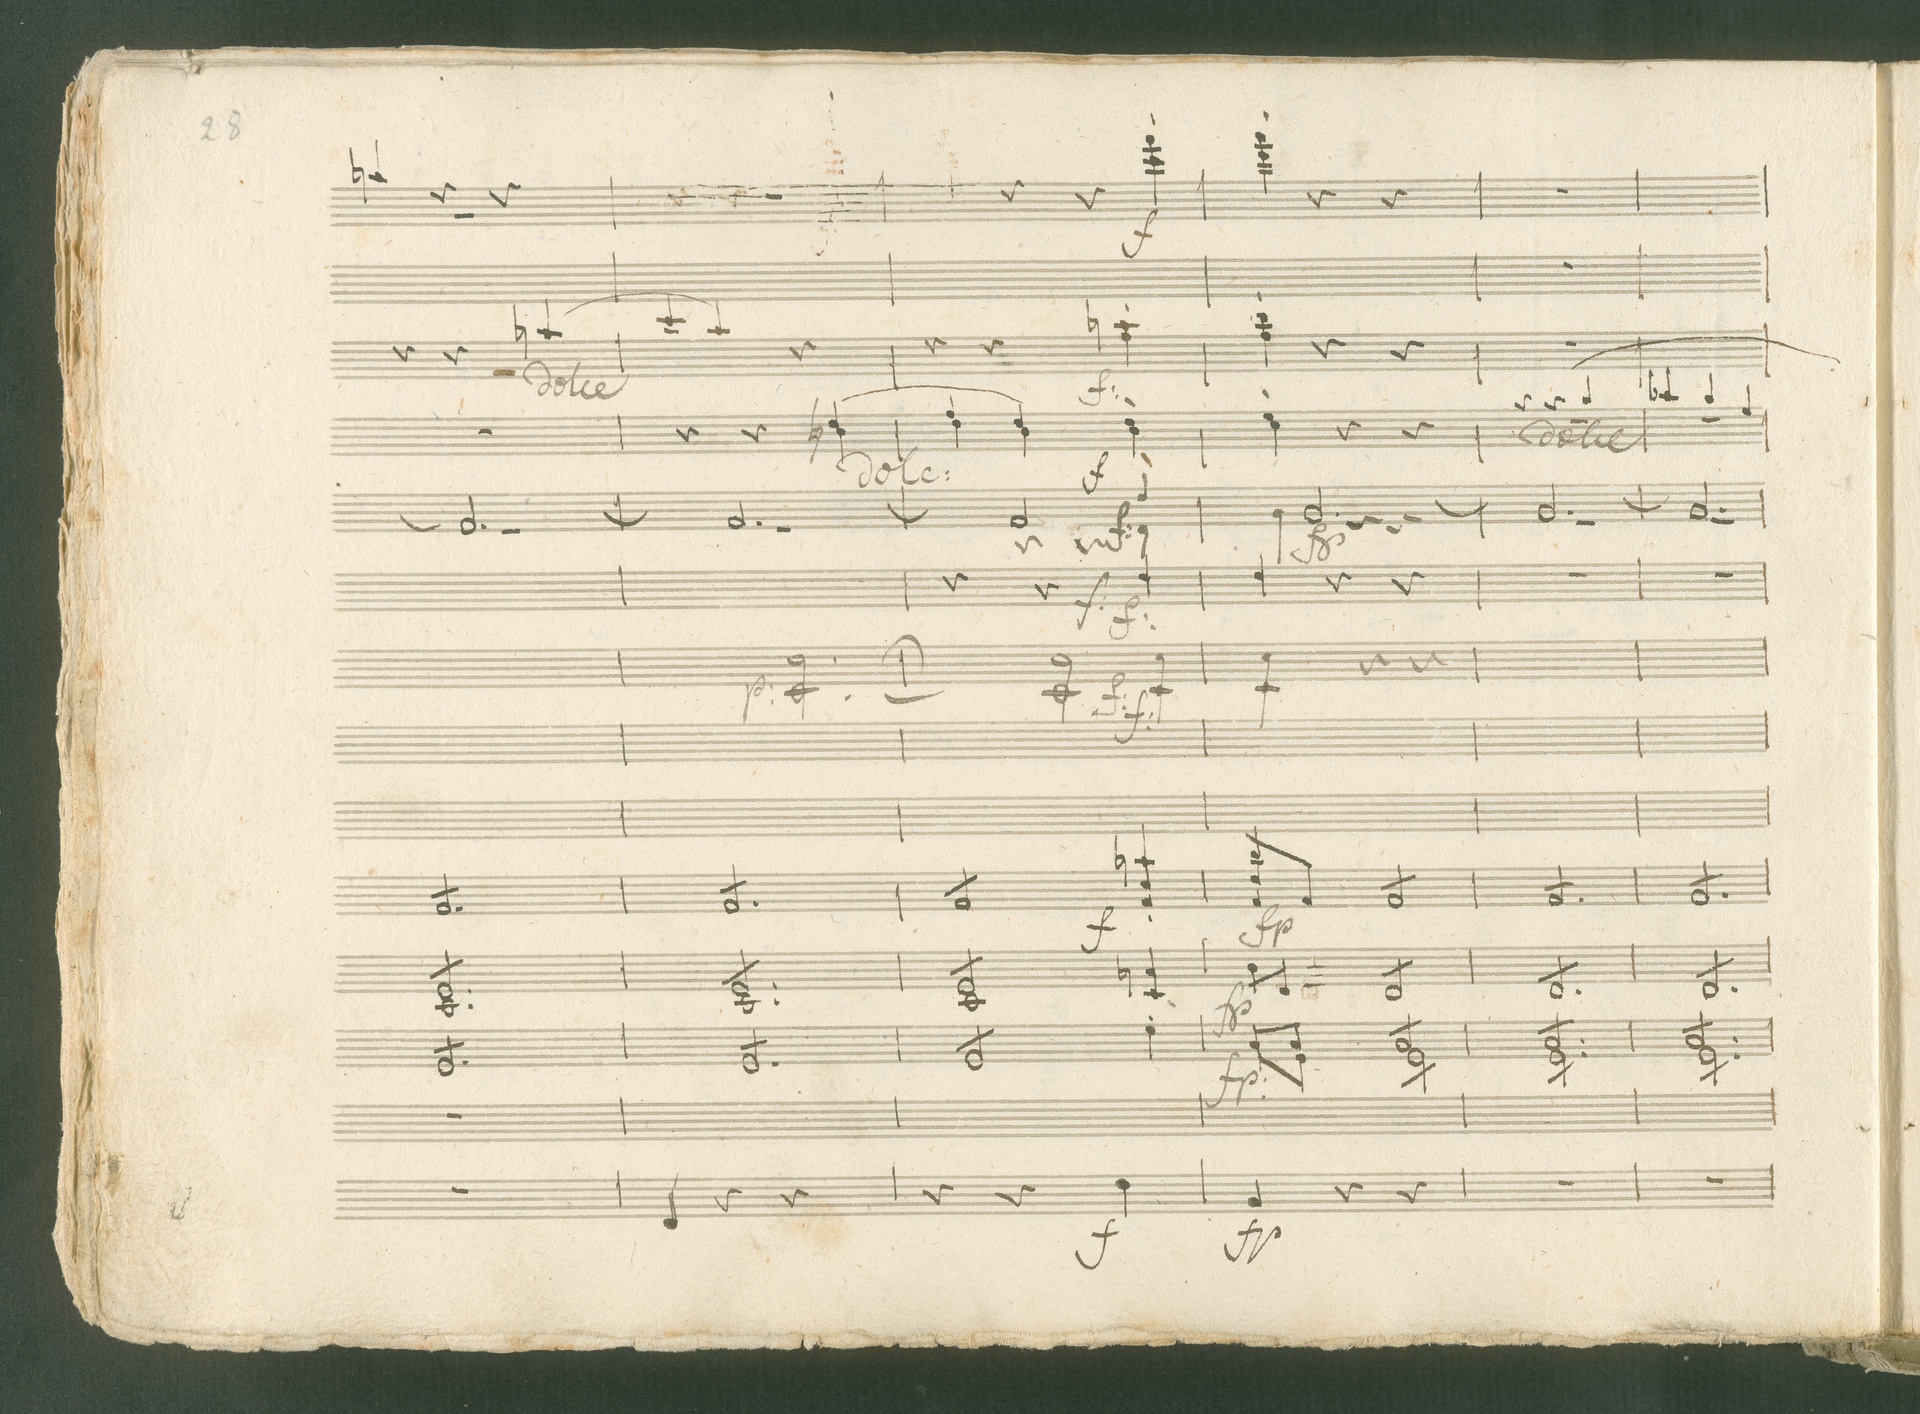 28
f
dolce
f:
dolc:
f
dolce
f:
fp
f:
f:
p:
f:
f:
f
fp
fp
fp:
f
fp